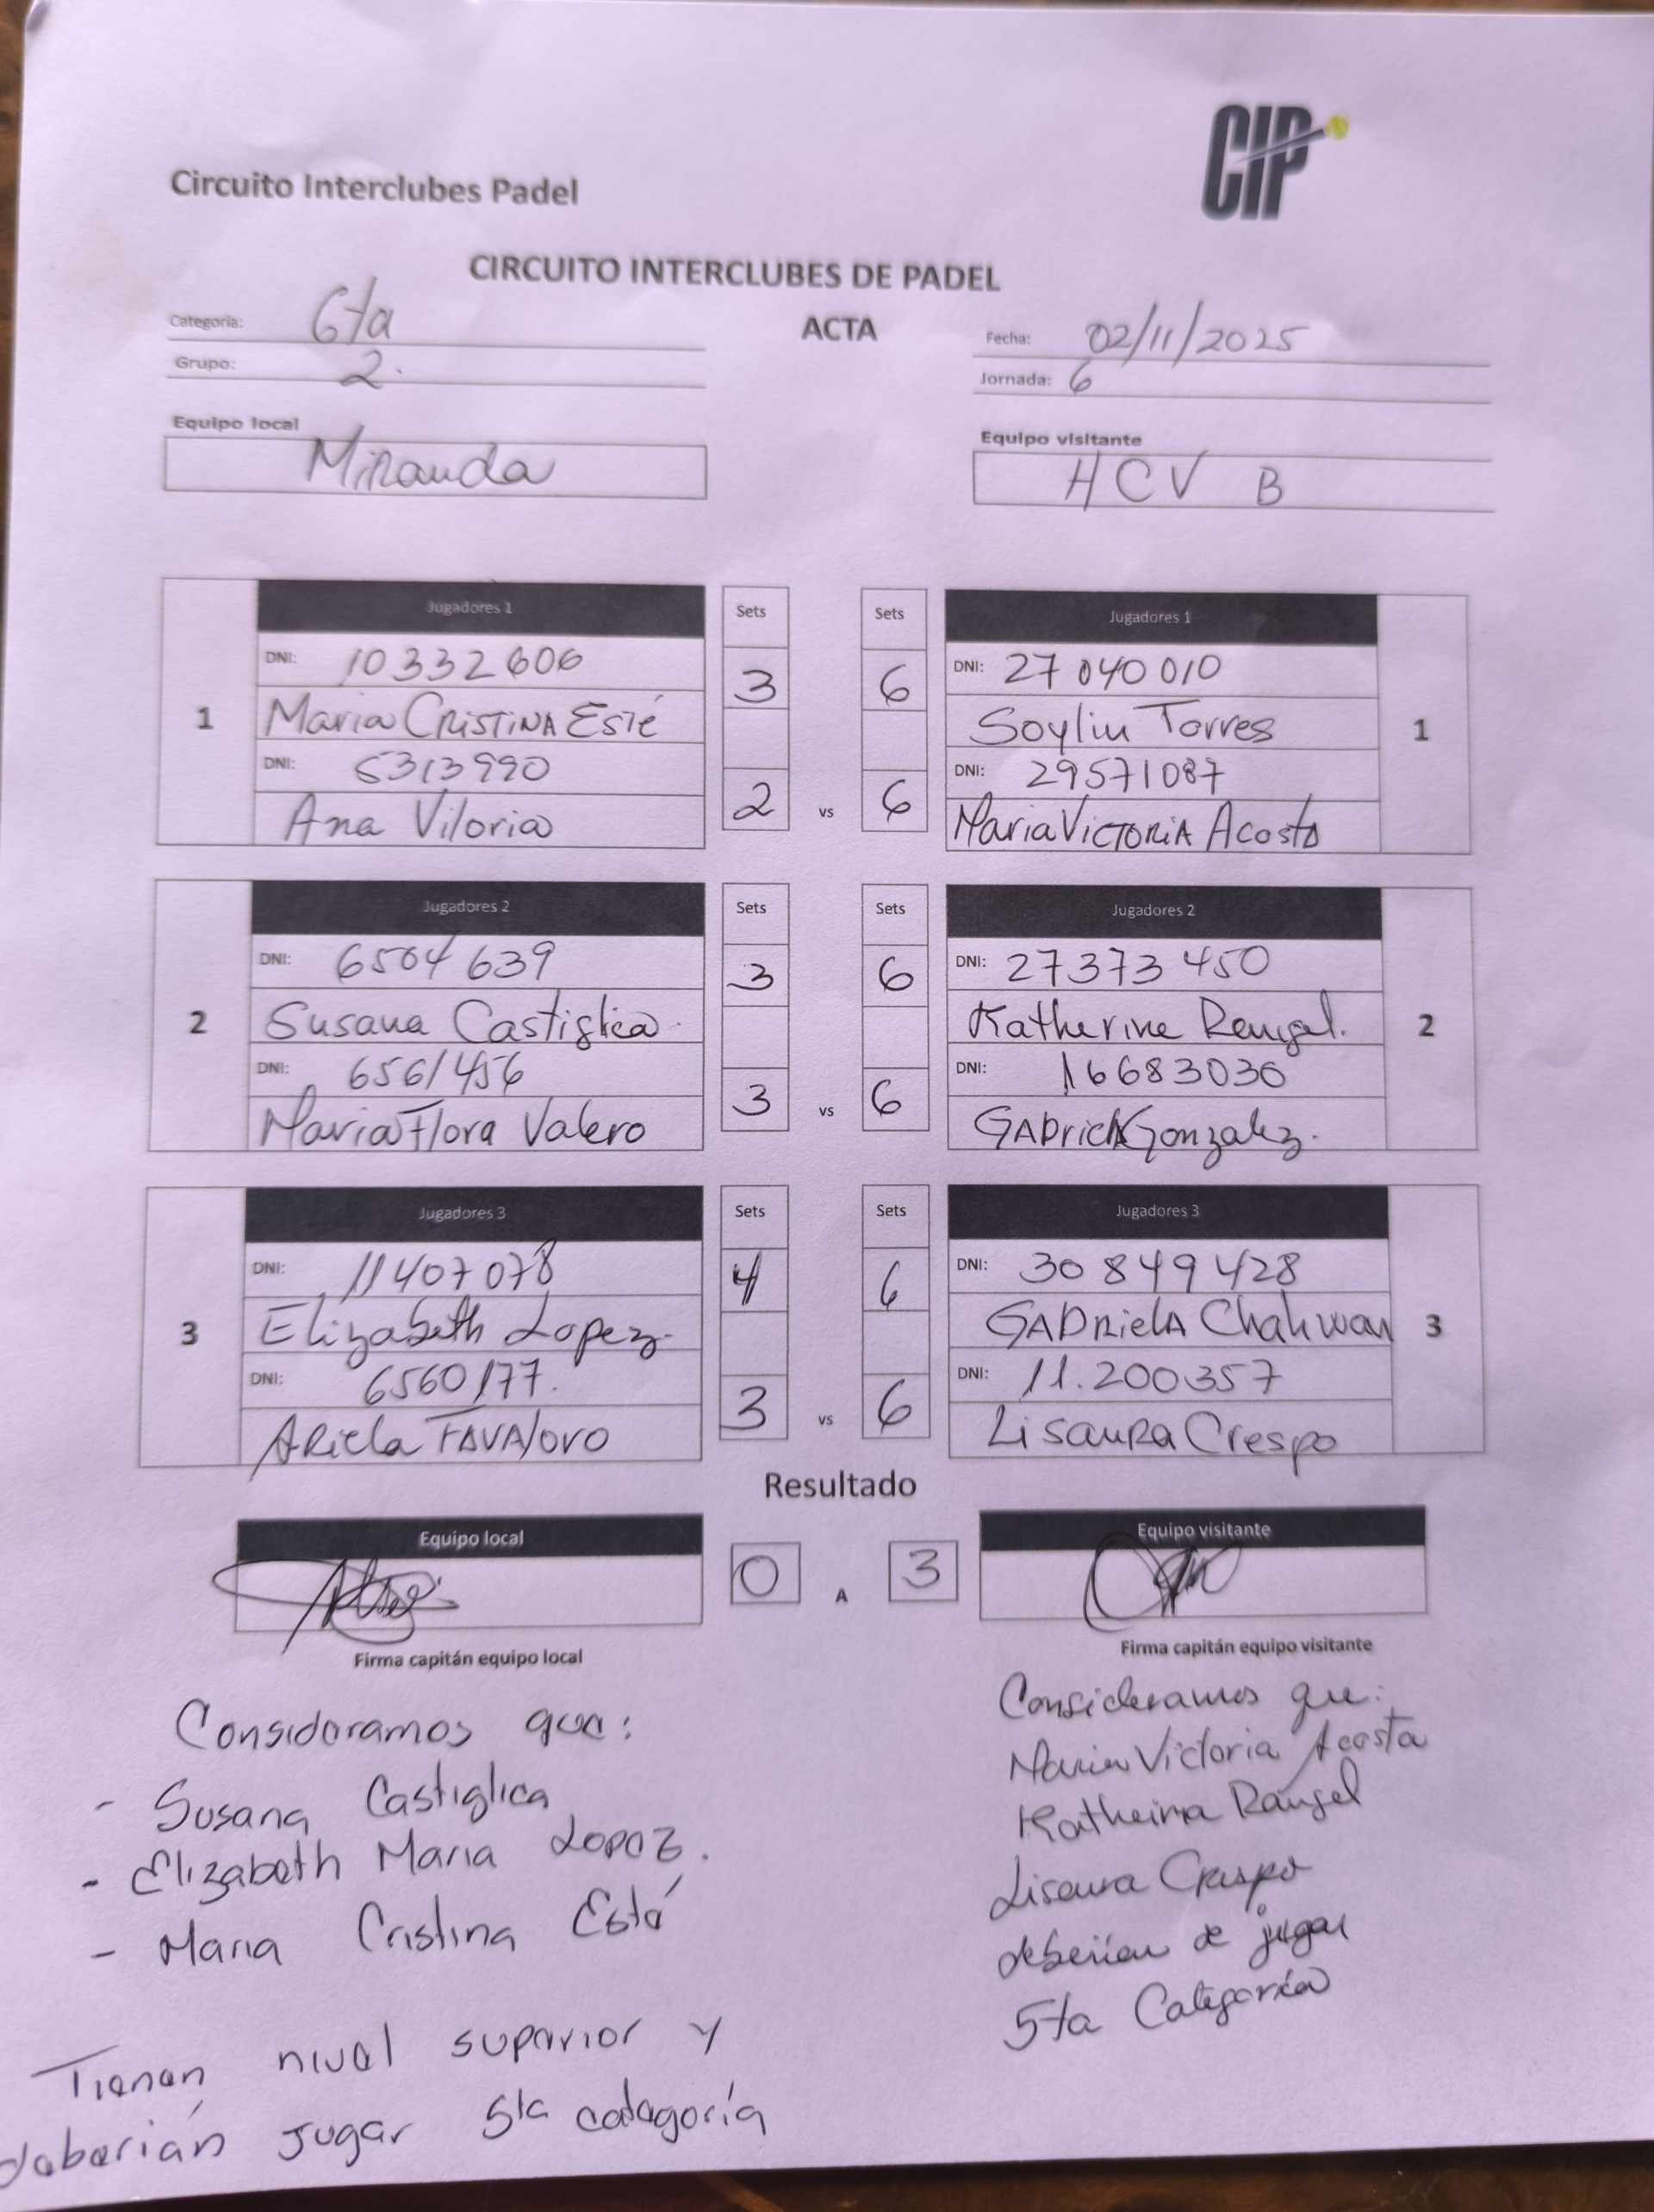 CIP
Circuito Interclubes Padel
CIRCUITO INTERCLUBES DE PADEL
ACTA
Categoria: 6ta
Grupo: 2.
Fecha: 02/11/2025
Jornada: 6
Equipo local
Miranda
Equipo visitante
HCV B
1
Jugadores 1
DNI: 10332606
Maria CRISTINA Esté
DNI: 6313990
Ana Viloria
Sets
3
2
vs
Sets
6
6
Jugadores 1
DNI: 27040010
Soylin Torres
DNI: 29571087
Maria VICTORIA Acosta
1
2
Jugadores 2
DNI: 6504639
Susana Castiglica
DNI: 6561456
Maria Flora Valero
Sets
3
3
vs
Sets
6
6
Jugadores 2
DNI: 27373450
Katherine Rengel.
DNI: 16683030
GAbrielA Gonzalez.
2
3
Jugadores 3
DNI: 11407078
Elizabeth Lopez.
DNI: 6560177.
ARiela FAVAloro
Sets
4
3
vs
Sets
6
6
Jugadores 3
DNI: 30849428
GAbRielA Chahwan
DNI: 11.200357
LisauRa Crespo
3
Resultado
Equipo local
0 A 3
Equipo visitante
Firma capitán equipo local
Firma capitán equipo visitante
Consideramos que:
- Susana Castiglica
- Elizabeth Maria Lopez.
- Maria Cristina Esté
Tienen nivel superior y
deberían jugar 5ta categoría
Consideramos que:
Maria Victoria Acosta
Katheirna Rangel
Lisaura Crespo
deberian de jugar
5ta Categoría